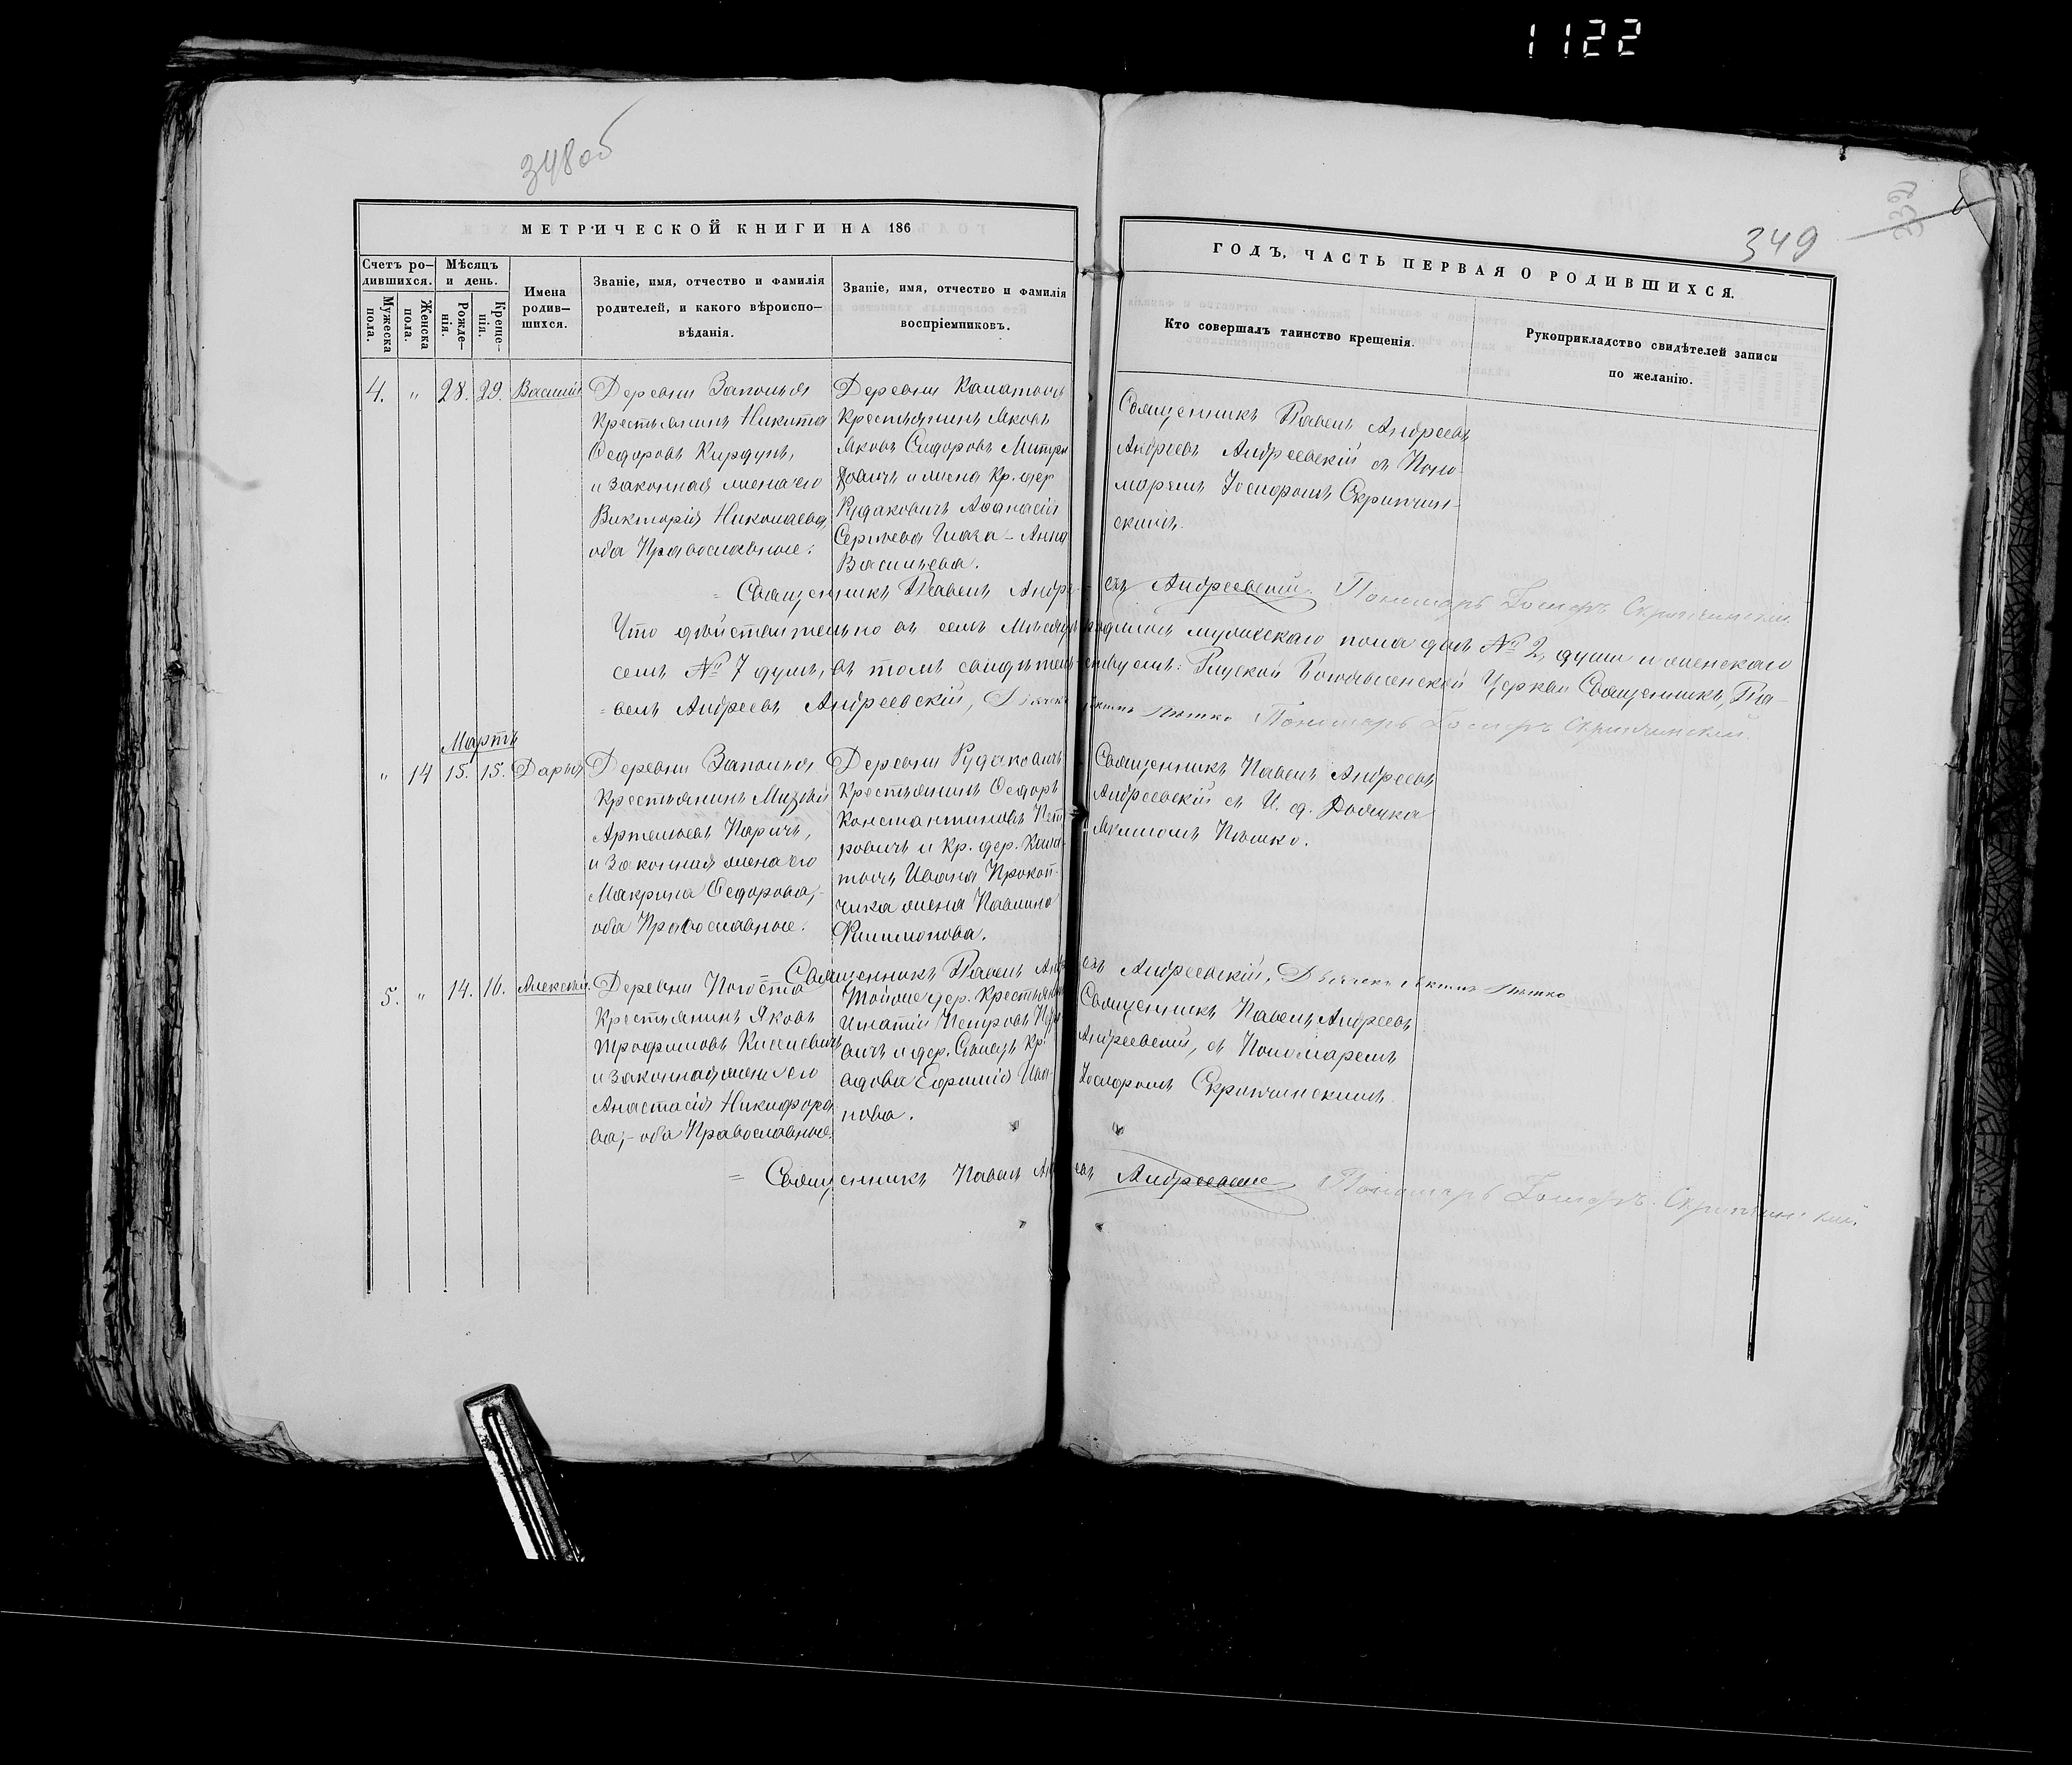 1122
348об
349
МЕТРИЧЕСКОЙ КНИГИ НА 186
ГОДЪ, ЧАСТЬ ПЕРВАЯ О РОДИВШИХСЯ.
Счетъ ро-
дившихся.
Мужеска
пола.
Женска
пола.
Мѣсяцъ
и день.
Рожде-
нія.
Креще-
нія.
Имена
родив-
шихся.
Званіе, имя, отчество и фамилія
родителей, и какого вѣроиспо-
вѣданія.
Званіе, имя, отчество и фамилія
воспріемниковъ.
Кто совершалъ таинство крещенія.
Рукоприкладство свидѣтелей записи
по желанію.
4. " 28. 29. Василій
Деревни Заполья
Крестьянинъ Никита
Ѳедоровъ Кирдунъ,
и законная жена его
Викторія Николаева,
оба Православные.
Деревни
Крестьянинъ Яковъ
Яковъ Сидоровъ
и жена Кр. дер
Рудаковичъ Аѳанасія
Сергѣева – Анна
Васильева.
Священникъ Павелъ Андреевъ
Андреевъ Андреевскій съ Поно-
маремъ Іосифомъ Скрипчин-
скимъ.
Священникъ Павелъ Андреевъ Андреевскій. Пономарь Іосифъ Скрипчинскій
Что дѣйствительно въ семъ Мѣсяцѣ родилось мужескаго пола № 2, души и женскаго
семь № 7 душъ, въ томъ свидѣтельствуемъ: Глуской Богоявленской Церкви Священникъ Па-
велъ Андреевъ Андреевскій, Пономарь Іосифъ Скрипчинскій.
Мартъ
" 14 15. 15. Дарья
Деревни Заполья
Крестьянинъ
Артемьевъ Паричъ,
и законная жена его
Макрина Ѳедорова,-
оба Православные.
Деревни Рудаковичъ
Крестьянинъ Ѳедоръ
Константиновъ Пет
ровичъ и Кр. дер.
Ивана Прокоп-
чика жена Павлина
Филимонова.
Священникъ Павелъ Андреевъ
Андреевскій съ И. д. Дьячка
Священникъ Павелъ Андреевъ Андреевскій,
5. " 14. 16. Алексѣй.
Деревни Погоста
Крестьянинъ Яковъ
Трофимовъ Киселевичъ
и законная жена его
Анастасія Никифоро
ва,- оба Православные.
Тойже дер. Крестьянинъ
Игнатій Петровъ
вичъ и дер. Кр.
вдова Евфимія Ива-
нова.
Священникъ Павелъ Андреевъ
Андреевскій, съ Пономаремъ
Іосифомъ Скрипчинскимъ
= Священникъ Павелъ Андреевъ Андреевскій Пономарь Іосифъ Скрипчинскій.